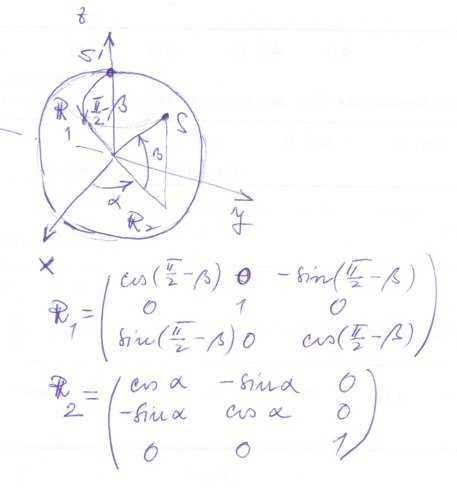 z
S'
R
1
π/2-β
S
β
α
R
2
y
x
R
1
=
cos(π/2-β) 0 -sin(π/2-β)
0 1 0
sin(π/2-β) 0 cos(π/2-β)
R
2
=
cos α -sin α 0
-sin α cos α 0
0 0 1